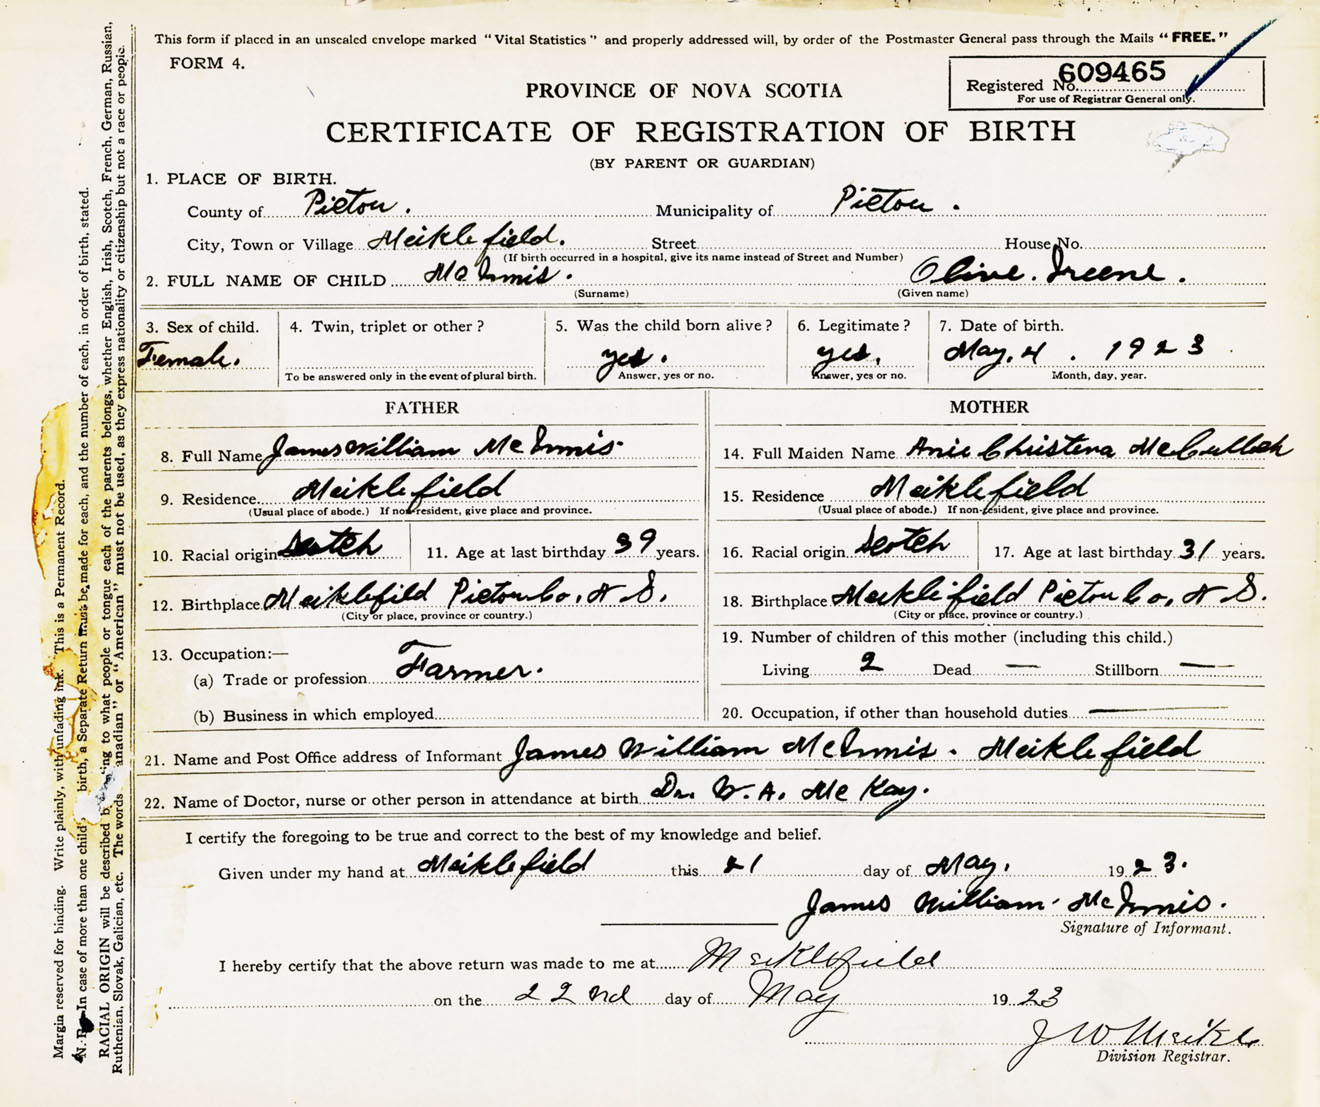 This form if placed in an unsealed envelope marked "Vital Statistics" and properly addressed will, by order of the Postmaster General pass through the Mails "FREE."
FORM 4.
Registered No. 609465
For use of Registrar General only.
PROVINCE OF NOVA SCOTIA
CERTIFICATE OF REGISTRATION OF BIRTH
(BY PARENT OR GUARDIAN)
1. PLACE OF BIRTH.
County of Pictou. Municipality of Pictou.
City, Town or Village Meiklefield. Street House No.
(If birth occurred in a hospital, give its name instead of Street and Number)
2. FULL NAME OF CHILD McInnis. Olive Ireene.
(Surname) (Given name)
3. Sex of child. 4. Twin, triplet or other? 5. Was the child born alive? 6. Legitimate? 7. Date of birth.
Female. yes. yes. May. 4. 1923
To be answered only in the event of plural birth. Answer, yes or no. Answer, yes or no. Month, day, year.
FATHER MOTHER
8. Full Name James William McInnis 14. Full Maiden Name Anie Christena McCulloch
9. Residence Meiklefield 15. Residence Meiklefield
(Usual place of abode.) If non-resident, give place and province. (Usual place of abode.) If non-resident, give place and province.
10. Racial origin Scotch 11. Age at last birthday 39 years. 16. Racial origin Scotch 17. Age at last birthday 31 years.
12. Birthplace Meiklefild Pictou Co, N.S. 18. Birthplace Meiklefield Pictou Co, N.S.
(City or place, province or country.) (City or place, province or country.)
13. Occupation:— 19. Number of children of this mother (including this child.)
(a) Trade or profession Farmer. Living 2 Dead — Stillborn —
(b) Business in which employed 20. Occupation, if other than household duties —
21. Name and Post Office address of Informant James William McInnis. Meiklefield
22. Name of Doctor, nurse or other person in attendance at birth Dr. W.A. McKay.
I certify the foregoing to be true and correct to the best of my knowledge and belief.
Given under my hand at Meiklefield this 21 day of May. 1923.
James William McInnis.
Signature of Informant.
I hereby certify that the above return was made to me at Meiklefield
on the 22nd day of May 1923
J W Meikle
Division Registrar.
Margin reserved for binding. Write plainly, with unfading ink. This is a Permanent Record.
N. B.—In case of more than one child birth, a Separate Return must be made for each, and the number of each, in order of birth, stated.
RACIAL ORIGIN will be described to what people or tongue each of the parents belongs, whether English, Irish, Scotch, French, German, Russian,
Ruthenian, Slovak, Galician, etc. The words anadian" or "American" must not be used, as they express nationality or citizenship but not a race or people.